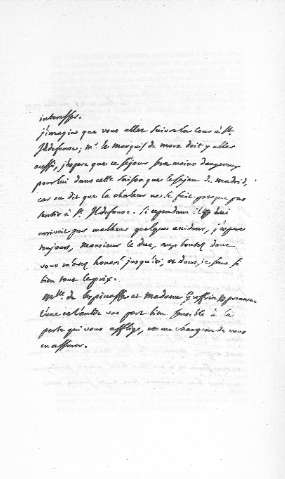 interessés.
j'imagine que vous allez suivre la cour à St.
Ildefonse; Mr. le marquis de mora doit y aller
aussi, j'espere que ce sejour sera moins dangereux
pour lui dans cette saison que le sejour de madrid,
car on dit que la chaleur ne se fait presque pas
sentir à St. Ildefonse. Si cependant il lui
arrivoit par malheur quelque accident, j'espere
toujours, monsieur le duc, vos bontés dont
vous m'avez honoré jusqu'ici, et dont je sens si
bien tout le prix.
Mlle. de Lespinasse et madame Geoffrin
une part bien sensible à la
perte qui vous afflige, et me chargent de vous
en assurer.